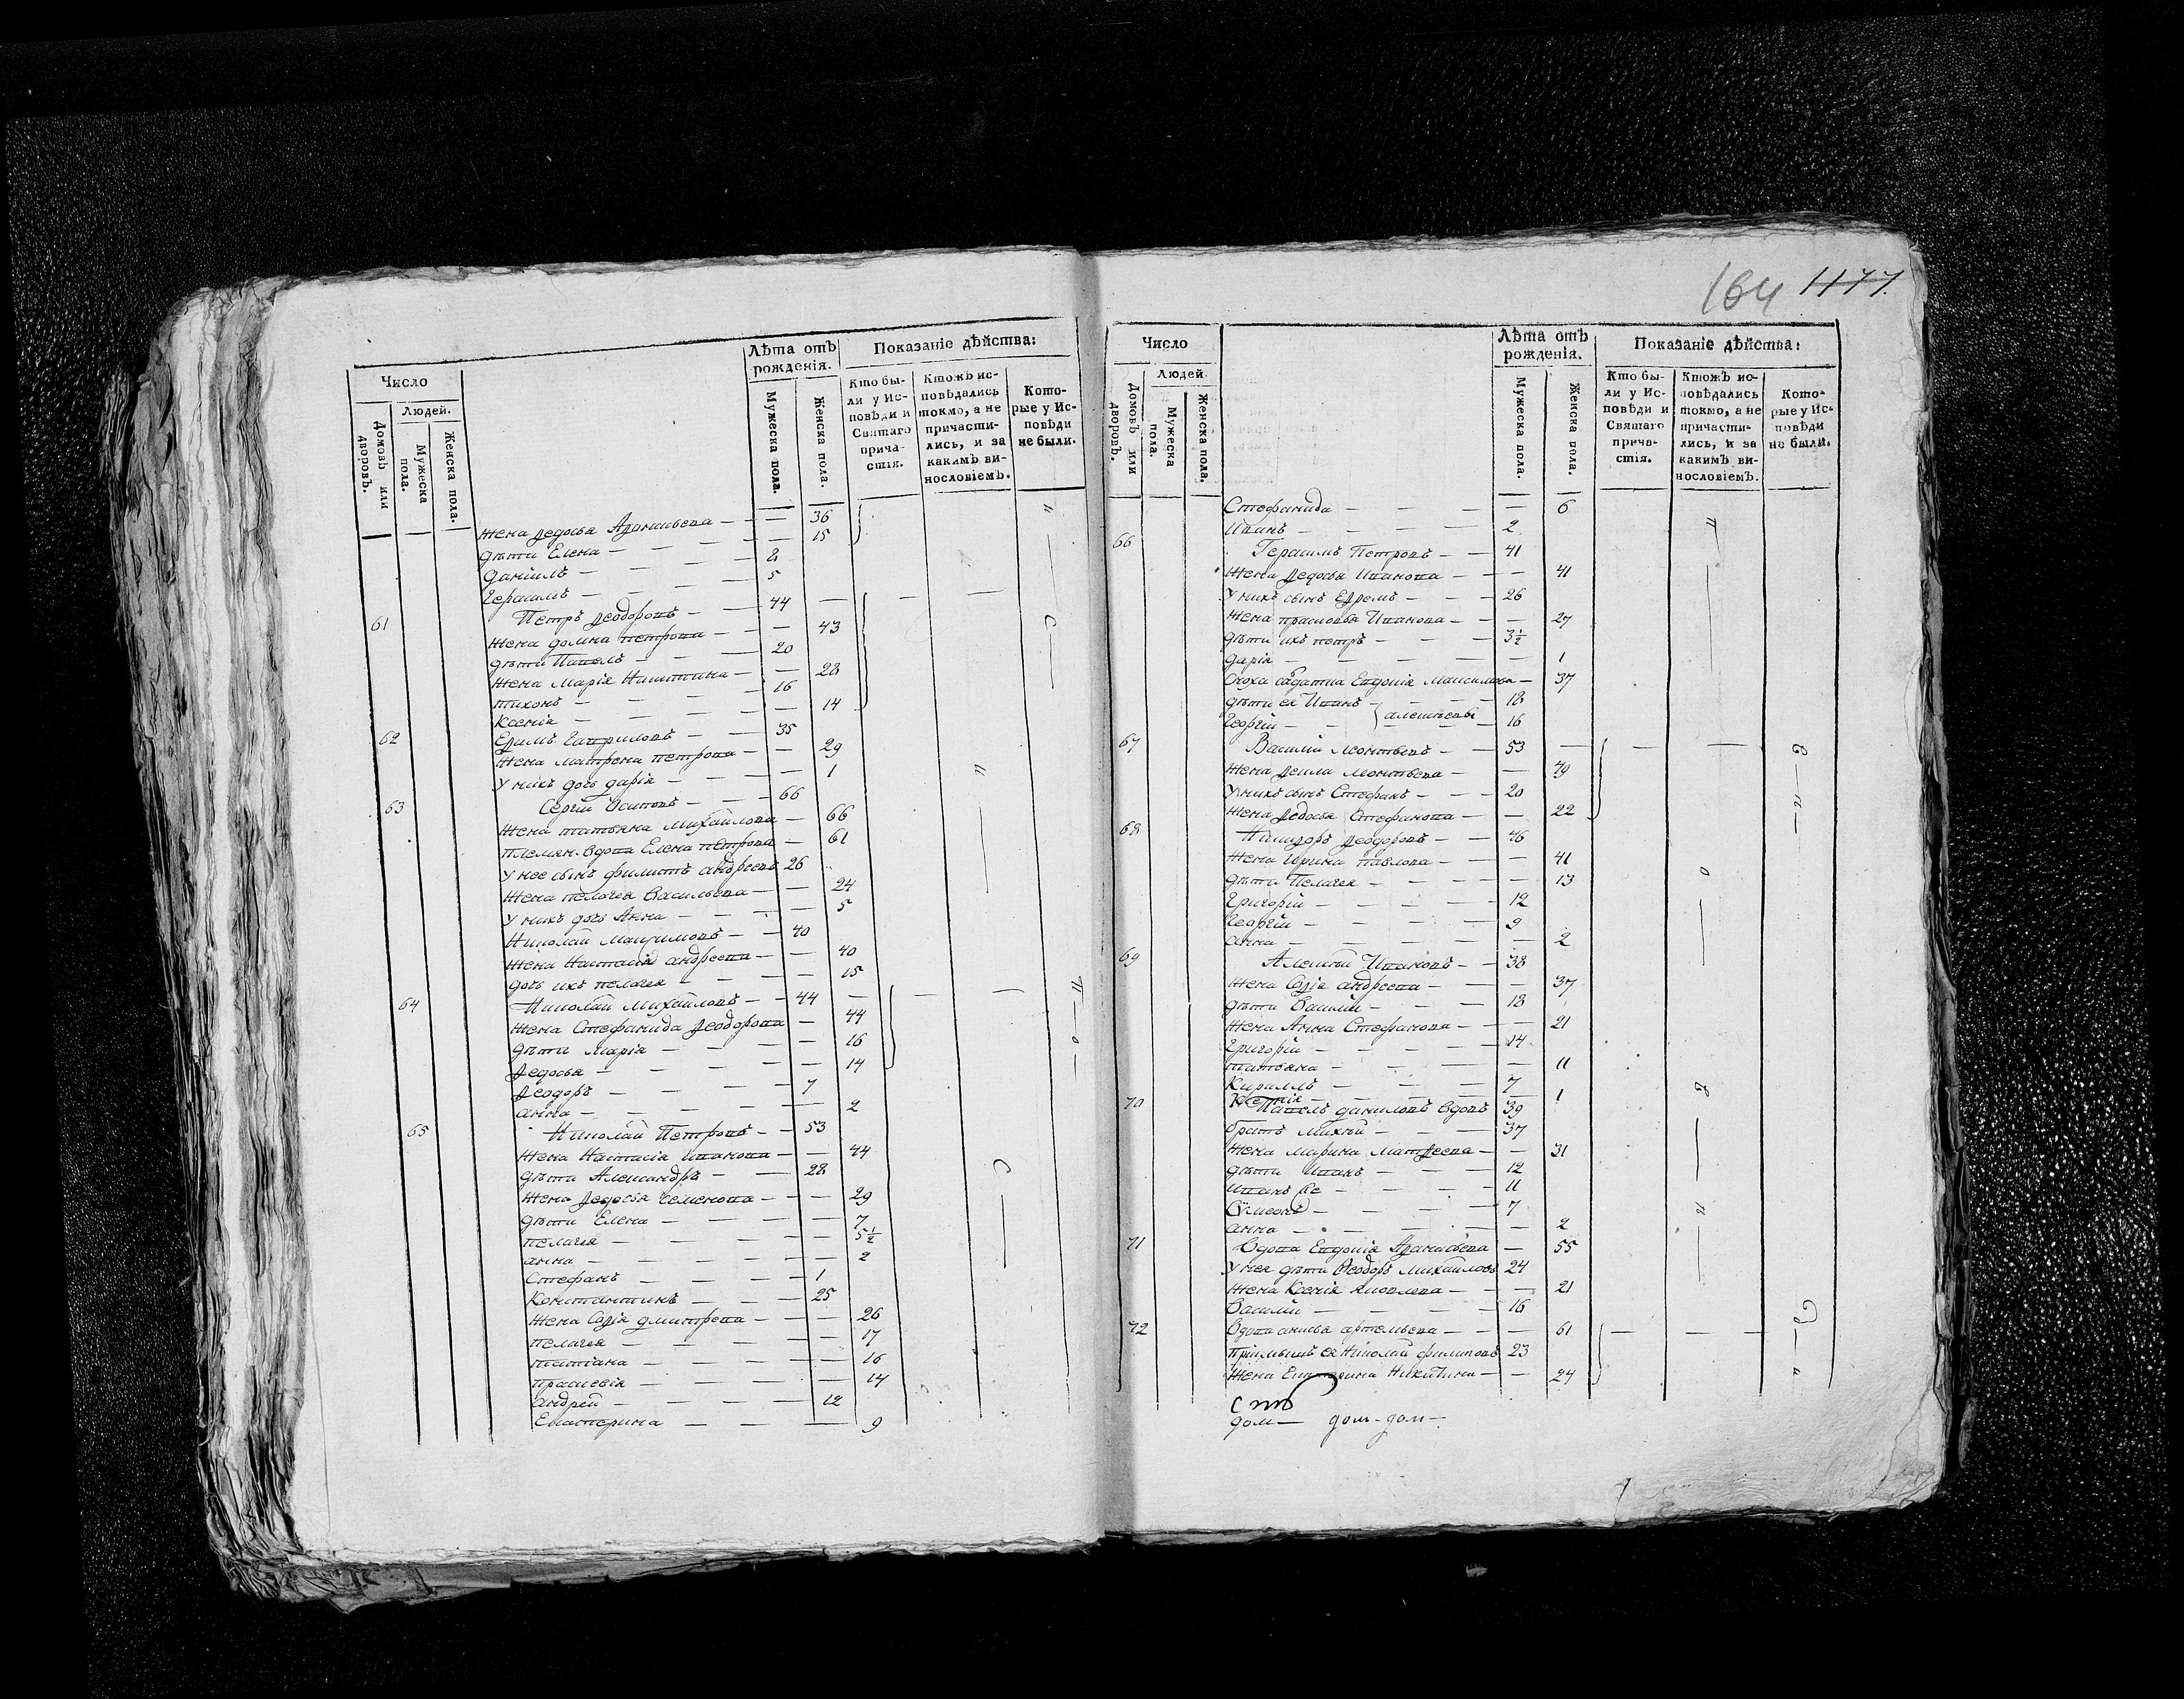 164 1177.
Число
Людей.
Домовъ или дворовъ.
Мужеска пола.
Женска пола.
Лѣта отъ рожденія.
Мужеска пола.
Женска пола.
Показаніе дѣйства:
Кто бы-
ли у Ис-
повѣди и
Святаго
прича-
стія.
Ктожъ ис-
повѣдались
токмо, а не
причасти-
лись, и за
какимъ ви-
нословіемъ.
Кото-
рые у Ис-
повѣди
не были.
Жена Ѳедосья Аѳанасьева — — 36
дѣти Елена — — — 15
Даніилъ — — — 8
Герасимъ — — — 5
61 Петръ Ѳеодоровъ — — 44 —
Жена домна петрова — — 43
дѣти Павелъ — — — 20
Жена Марія Никитина — — 28
тихонъ — — — 16
Ксенія — — — — 14
62 Ефимъ Гавриловъ — — 35
Жена матрена петрова — — 29
У нихъ дочь дарія — — — 1
63 Сергій Осиповъ — — 66
Жена татьяна Михайлова — 66
племян. вдова Елена петрова — 61
У нее сынъ филипъ андреевъ 26
Жена пелагея Васильева — — 24
У нихъ дочь Анна — — — 5
Николай Мавримовъ — — 40
Жена Настасія андреева — — 40
дочь ихъ пелагея — — — 15
64 Николай Михайловъ — — 44 —
Жена Стефанида Ѳеодорова — 44
дѣти Марія — — — — 16
Ѳедосья — — — — 14
Ѳеодоръ — — — 7
анна — — — — 2
65 Николай Петровъ — — 53
Жена Настасія иванова — — 44
дѣти Александръ — — 28
Жена Ѳедосья семенова — — 29
дѣти Елена — — — — 7
пелагея — — — — 5½
анна — — — — 2
Стефанъ — — — 1
Константинъ — — — 25
Жена Софія дмитрева — — — 26
пелагея — — — — 17
татіана — — — — 16
прасковія — — — — 14
андрей — — — 12
Екатерина — — — 9
Число
Людей.
Домовъ или дворовъ.
Мужеска пола.
Женска пола.
Лѣта отъ рожденія.
Мужеска пола.
Женска пола.
Показаніе дѣйства:
Кто бы-
ли у Ис-
повѣди и
Святаго
прича-
стія.
Ктожъ ис-
повѣдались
токмо, а не
причасти-
лись, и за
какимъ ви-
нословіемъ.
Кото-
рые у Ис-
повѣди
не были.
Стефанида — — — — 6
Иванъ — — — — 2
66 Герасимъ Петровъ — — 41
Жена Ѳедосья Иванова — — 41
У нихъ сынъ Ефремъ — — — 26
Жена прасковья Иванова — — 27
дѣти ихъ петръ — — — 3½
дарія — — — — — 1
Сноха солдатка Евдокія Максимова — 37
дѣти ея Иванъ — — — 18
Георгій — — алексѣевы — 16
67 Василій Леонтьевъ — — 53 —
Жена Ѳекла леонтьева — — 49
У нихъ сынъ Стефанъ — — 20
Жена Ѳедосья Стефанова — — 22
68 Никифоръ Ѳеодоровъ — — 46
Жена Ирина павлова — — — 41
дѣти Пелагея — — — — 13
Григорій — — — — 12
Георгій — — — — 9
анна — — — — — 2
69 Алексѣй Ивановъ — — 38
Жена Софія андреева — — — 37
дѣти Василій — — — 18
Жена Анна Стефанова — — — 21
Григорій — — — — 14
татьяна — — — — 11
Кириллъ — — — 7
Ксенія — — — — 1
70 Павелъ даниловъ вдовъ 39
братъ Михей — — — 37
Жена Марина Матѳеева — — 31
дѣти Иванъ — — — 12
Иванъ же — — — — 11
Сумеонъ — — — — 7
анна — — — — — 2
71 Вдова Евдокія Аѳанасьева — 55
У нея дѣти Ѳеодоръ Михайловъ 24
Жена Ксенія яковлева — — — 21
Василій — — — — 16
72 Вдова анисья артемьева — — — 61
пріимышъ ея Николай филиповъ 23
Жена Екатерина Никитина — — 24
дом— дом-дом—